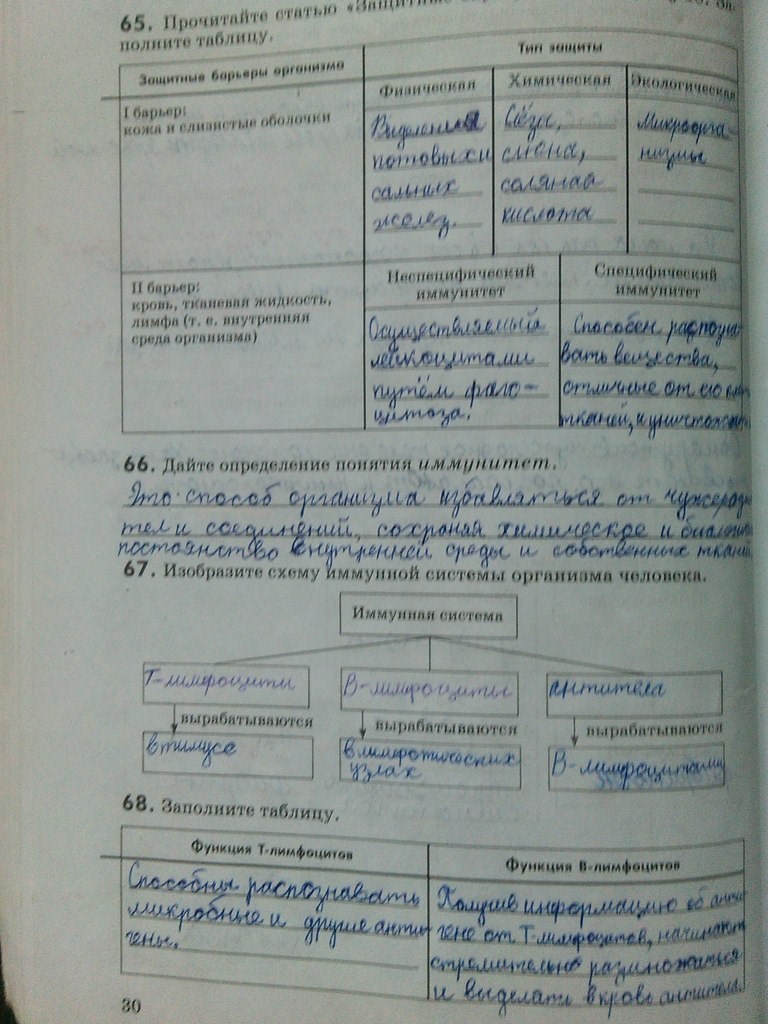 65. Прочитайте статью «Защитные
полните таблицу.
Защитные барьеры организма
Тип защиты
Физическая
Химическая
Экологическая
I барьер:
кожа и слизистые оболочки
Выделения
потовых и
сальных
желез.
Слёзы,
слюна,
соляная
кислота
Микроорга-
низмы
II барьер:
кровь, тканевая жидкость,
лимфа (т. е. внутренняя
среда организма)
Неспецифический
иммунитет
Специфический
иммунитет
Осуществляемый
лейкоцитами
путём фаго-
цитоза.
Способен распозна
вать вещества,
отличные от его
тканей, и уничтожать
66. Дайте определение понятия иммунитет.
Это способ организма избавляться от чужерод
тел и соединений, сохраняя химическое и биологич
постоянство внутренней среды и собственных ткан
67. Изобразите схему иммунной системы организма человека.
Иммунная система
Т-лимфоциты
В-лимфоциты
антитела
вырабатываются
вырабатываются
вырабатываются
в тимусе
в лимфатических
узлах
В-лимфоцитами
68. Заполните таблицу.
Функция Т-лимфоцитов
Функция В-лимфоцитов
Способны распознавать
микробные и другие анти
гены.
Получив информацию об анти
гене от Т-лимфоцитов, начинают
стремительно размножаться
и выделать в кровь антитела.
30